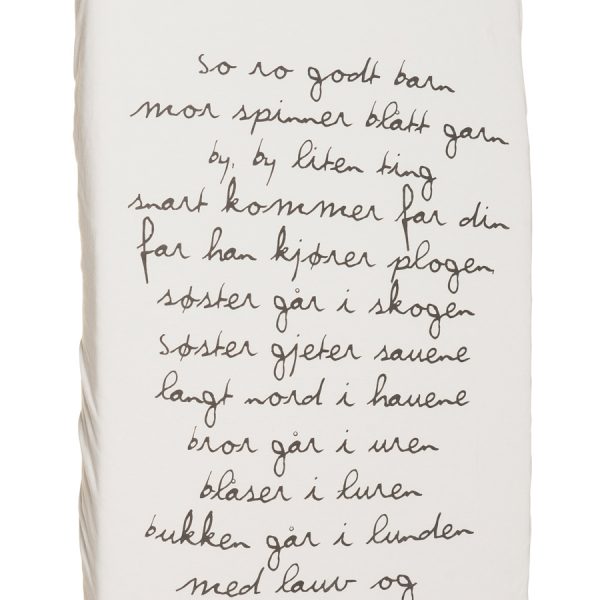 so ro godt barn
mor spinner blått garn
by, by liten ting
snart kommer far din
far han kjører plogen
søster går i skogen
søster gjeter sauene
langt nord i hauene
bror går i uren
blåser i luren
bukken går i lunden
med lauv og